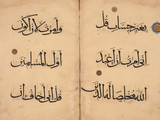 بِغَيْرِ حِسَابٍ قُلْ
إِنِّي أُمِرْتُ أَنْ أَعْبُدَ
اللَّهَ مُخْلِصًا لَهُ الدِّينَ
وَأُمِرْتُ لِأَنْ أَكُونَ
أَوَّلَ الْمُسْلِمِينَ
قُلْ إِنِّي أَخَافُ إِنْ